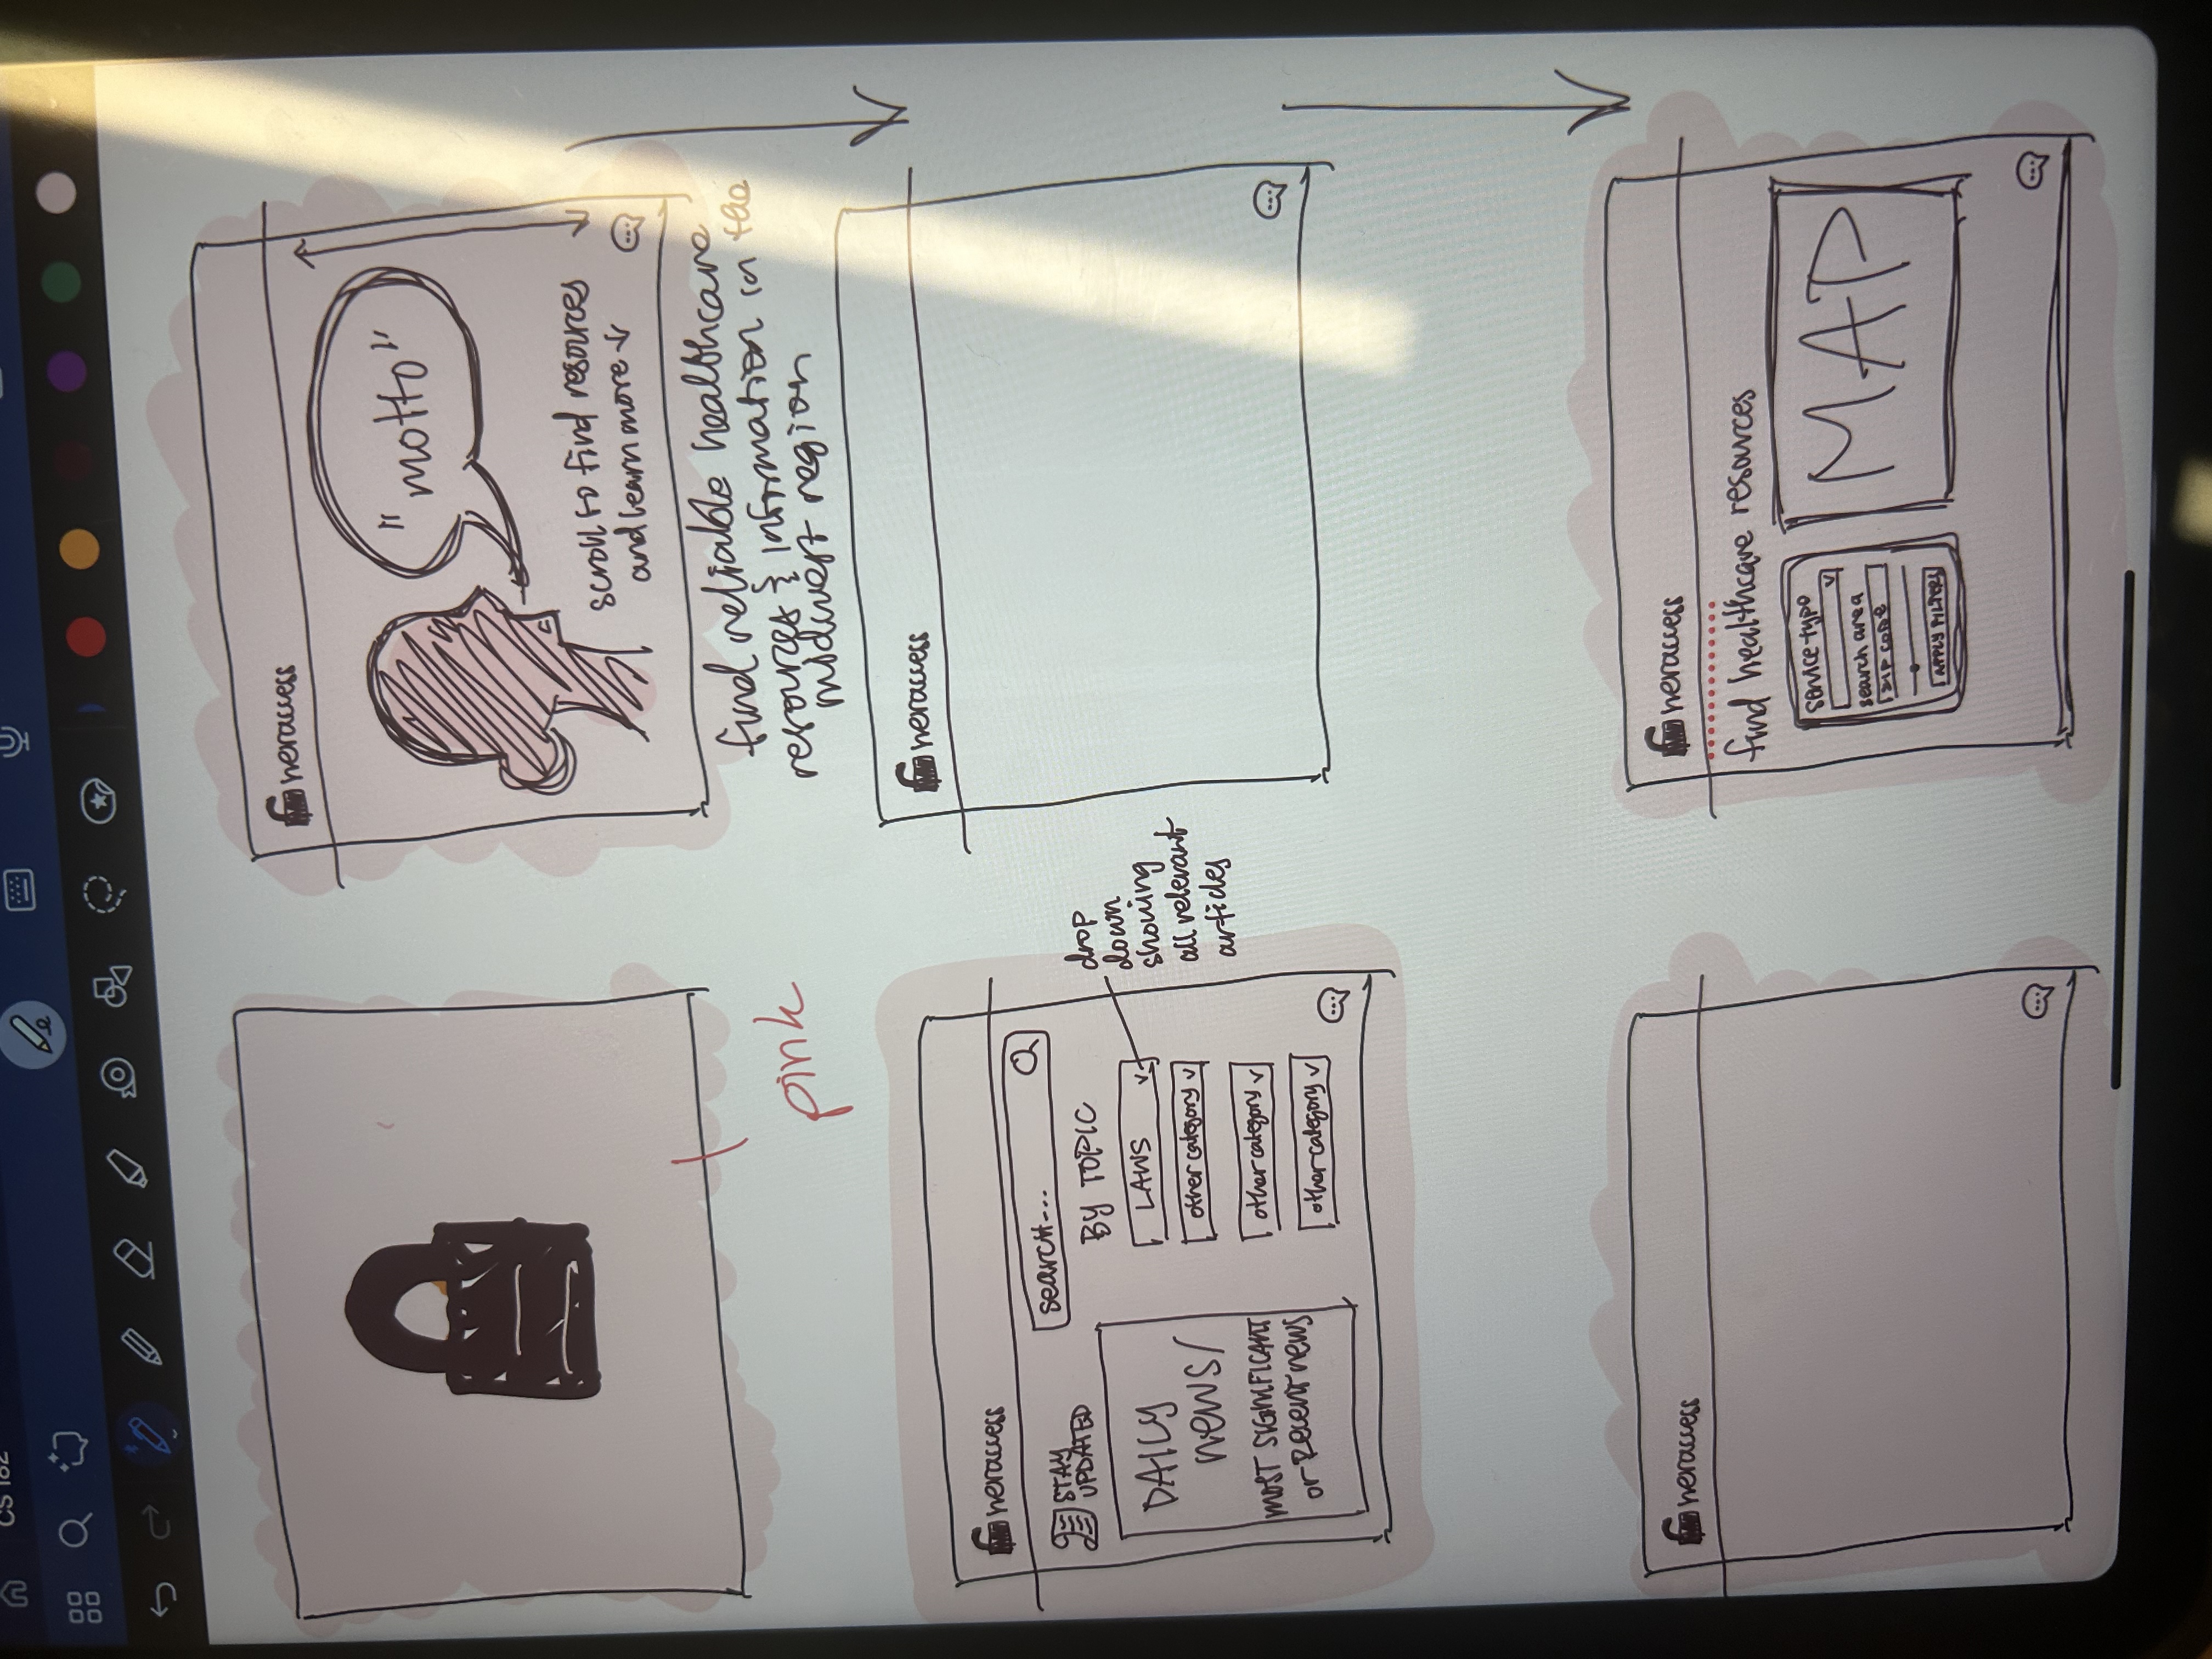 CS 182
heraccess
"motto"
scroll to find resources
and learn more ↓
pink
find reliable healthcare
resources & information in the
midwest region
heraccess
search...
STAY
UPDATED
BY TOPIC
DAILY
news/
MOST SIGNIFICANT
or RECENT news
LAWS
other category
other category
other category
drop
down
showing
all relevant
articles
heraccess
heraccess
heraccess
find healthcare resources
service type
search area
ZIP CODE
APPLY FILTERS
MAP